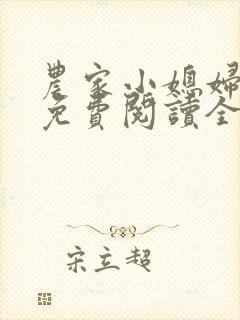 農家小媳婦
免費閱讀全
宋立超